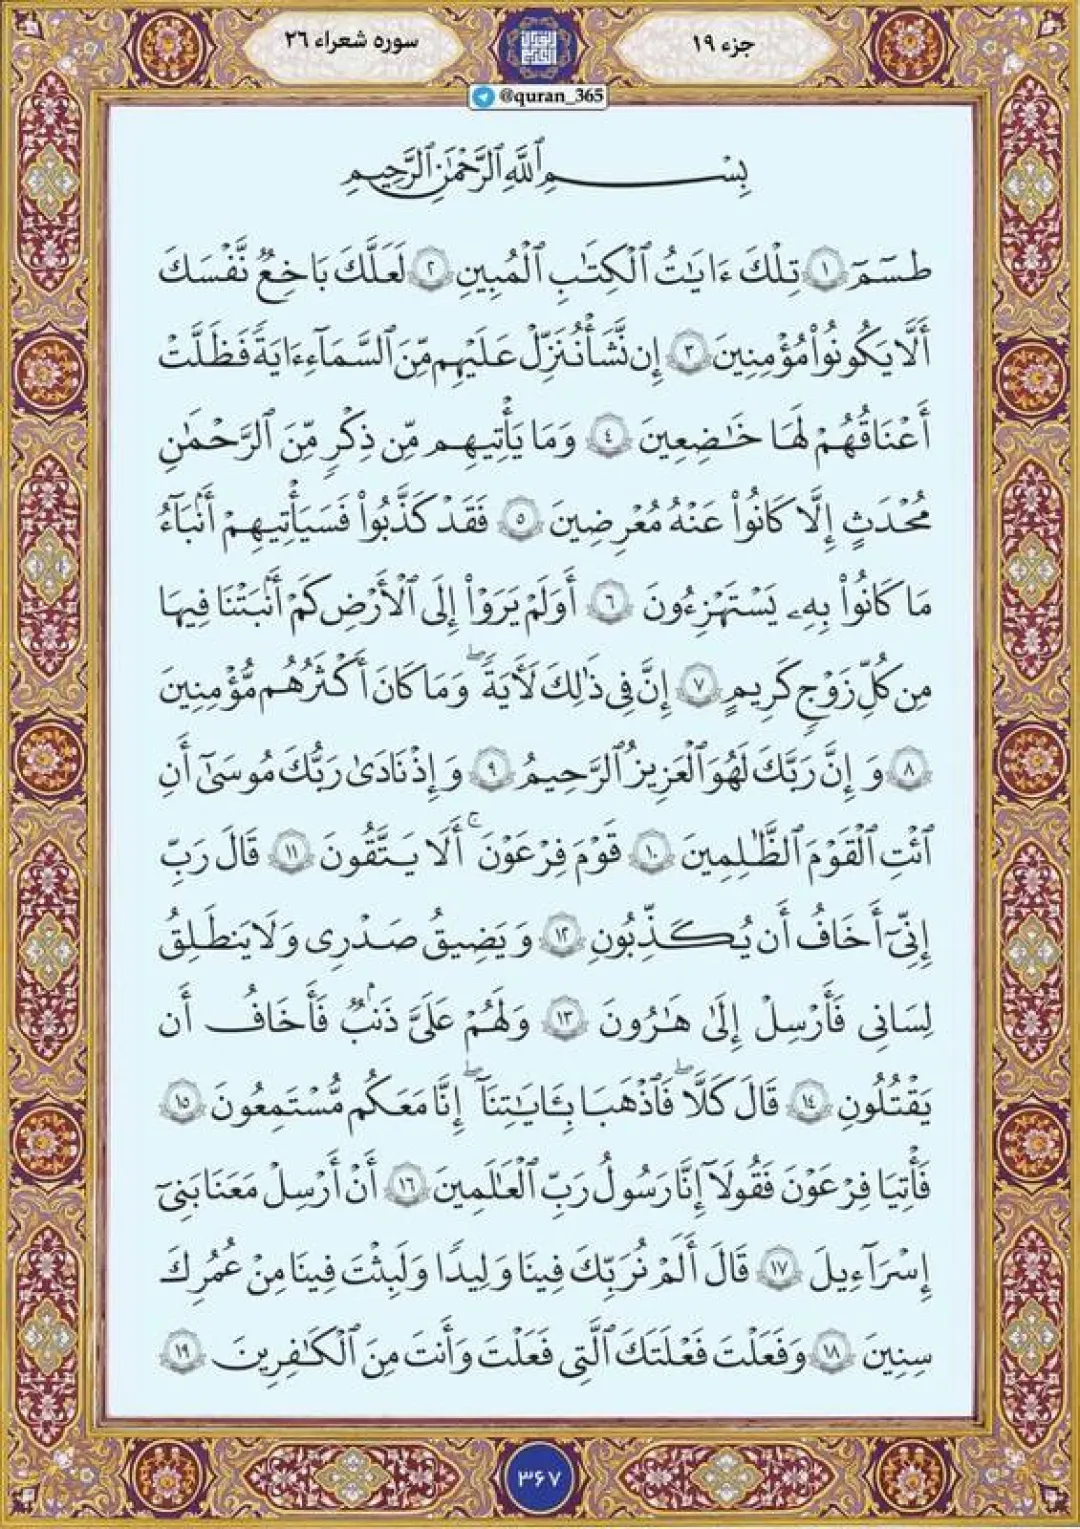 جزء ۱۹
سوره شعراء ۲۶
@quran_365
بِسْمِ ٱللَّهِ ٱلرَّحْمَٰنِ ٱلرَّحِيمِ
طسٓمٓ ١ تِلْكَ ءَايَٰتُ ٱلْكِتَٰبِ ٱلْمُبِينِ ٢ لَعَلَّكَ بَاخِعٌ نَّفْسَكَ
أَلَّا يَكُونُوا۟ مُؤْمِنِينَ ٣ إِن نَّشَأْ نُنَزِّلْ عَلَيْهِم مِّنَ ٱلسَّمَآءِ ءَايَةً فَظَلَّتْ
أَعْنَٰقُهُمْ لَهَا خَٰضِعِينَ ٤ وَمَا يَأْتِيهِم مِّن ذِكْرٍ مِّنَ ٱلرَّحْمَٰنِ
مُحْدَثٍ إِلَّا كَانُوا۟ عَنْهُ مُعْرِضِينَ ٥ فَقَدْ كَذَّبُوا۟ فَسَيَأْتِيهِمْ أَنۢبَٰٓؤُا۟
مَا كَانُوا۟ بِهِۦ يَسْتَهْزِءُونَ ٦ أَوَلَمْ يَرَوْا۟ إِلَى ٱلْأَرْضِ كَمْ أَنۢبَتْنَا فِيهَا
مِن كُلِّ زَوْجٍ كَرِيمٍ ٧ إِنَّ فِى ذَٰلِكَ لَءَايَةً ۖ وَمَا كَانَ أَكْثَرُهُم مُّؤْمِنِينَ
٨ وَإِنَّ رَبَّكَ لَهُوَ ٱلْعَزِيزُ ٱلرَّحِيمُ ٩ وَإِذْ نَادَىٰ رَبُّكَ مُوسَىٰٓ أَنِ
ٱئْتِ ٱلْقَوْمَ ٱلظَّٰلِمِينَ ١٠ قَوْمَ فِرْعَوْنَ ۚ أَلَا يَتَّقُونَ ١١ قَالَ رَبِّ
إِنِّىٓ أَخَافُ أَن يُكَذِّبُونِ ١٢ وَيَضِيقُ صَدْرِى وَلَا يَنطَلِقُ
لِسَانِى فَأَرْسِلْ إِلَىٰ هَٰرُونَ ١٣ وَلَهُمْ عَلَىَّ ذَنۢبٌ فَأَخَافُ أَن
يَقْتُلُونِ ١٤ قَالَ كَلَّا ۖ فَٱذْهَبَا بِـَٔايَٰتِنَآ ۖ إِنَّا مَعَكُم مُّسْتَمِعُونَ ١٥
فَأْتِيَا فِرْعَوْنَ فَقُولَآ إِنَّا رَسُولُ رَبِّ ٱلْعَٰلَمِينَ ١٦ أَنْ أَرْسِلْ مَعَنَا بَنِىٓ
إِسْرَٰٓءِيلَ ١٧ قَالَ أَلَمْ نُرَبِّكَ فِينَا وَلِيدًا وَلَبِثْتَ فِينَا مِنْ عُمُرِكَ
سِنِينَ ١٨ وَفَعَلْتَ فَعْلَتَكَ ٱلَّتِى فَعَلْتَ وَأَنتَ مِنَ ٱلْكَٰفِرِينَ ١٩
۳۶۷